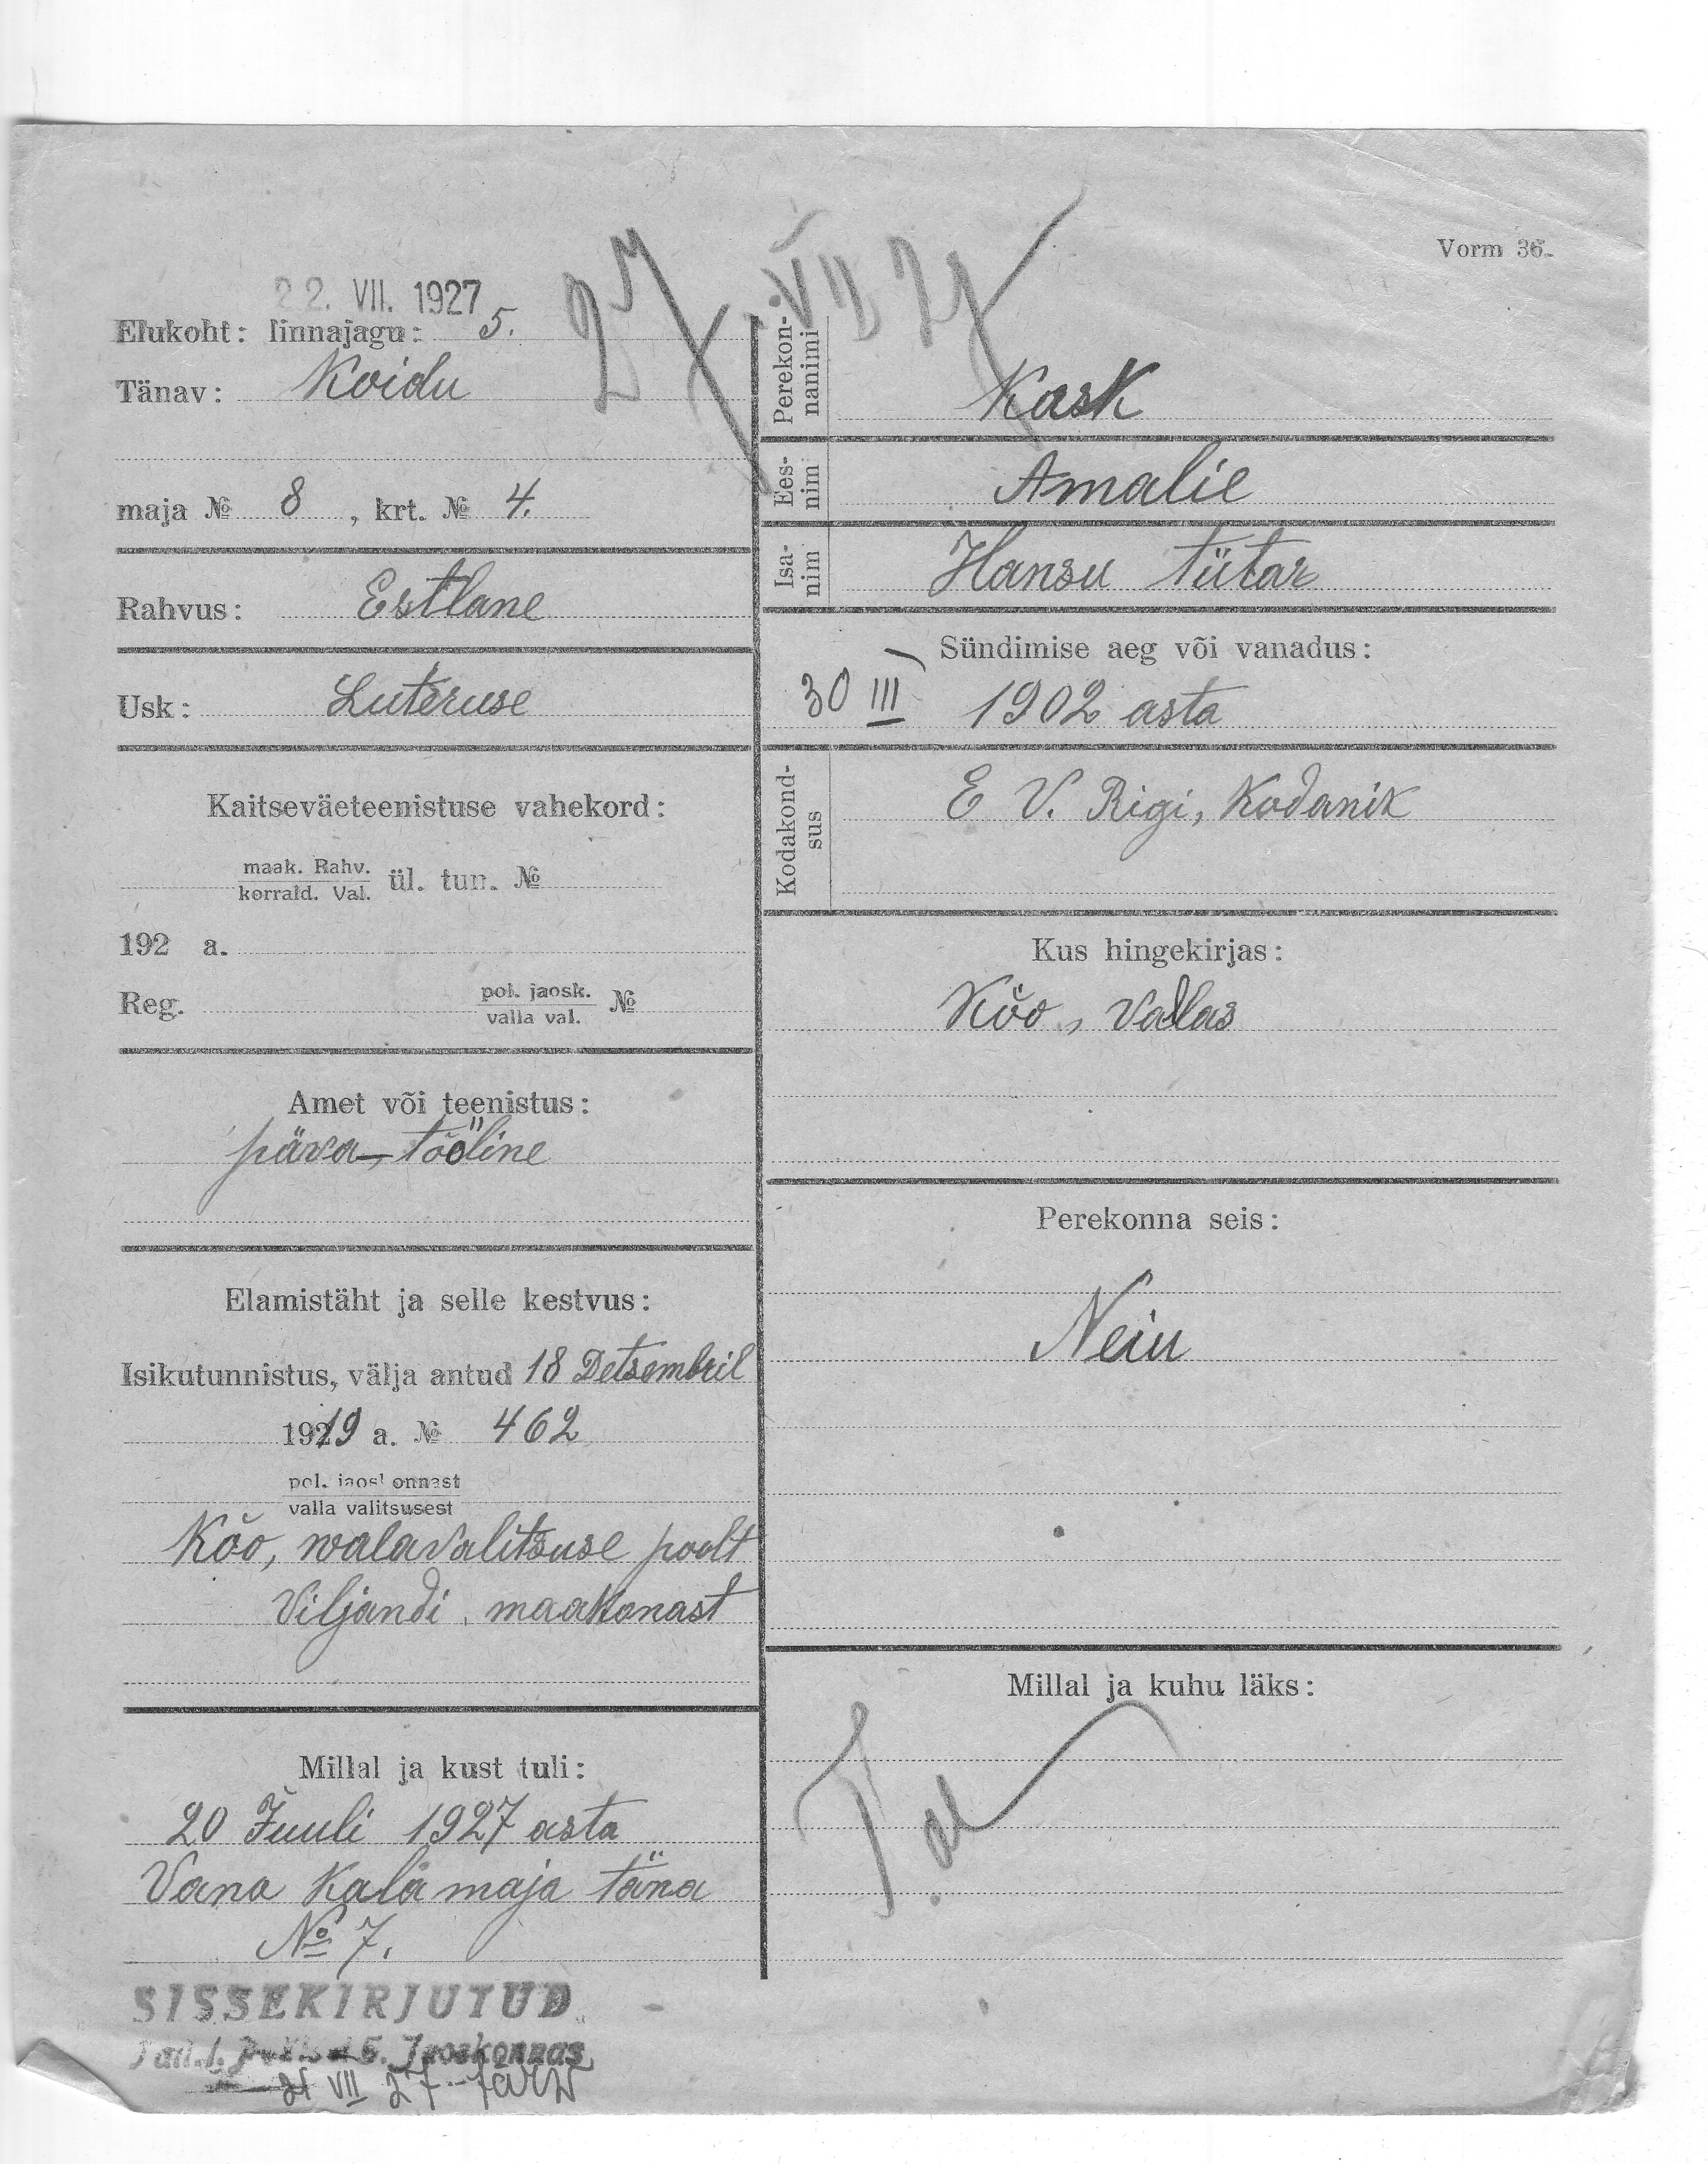 Vorm 36.
22. VII. 1927
Elukoht: linnajagu: 5.
Tänav: Koidu
maja № 8, krt. № 4.
Rahvus: Estlane
Usk: Luteruse
Kaitseväeteenistuse vahekord:
maak. Rahv.
korrald. Val. ül. tun. №
192 a.
Reg. pol. jaosk. №
valla val.
Amet või teenistus:
päva-tööline
Elamistäht ja selle kestvus:
Isikutunnistus, välja antud 18 Detsembril
19219 a. № 462
pol. jaoskonnast
valla valitsusest
Kõo, walavalitsuse poolt
Viljandi, maakonast
Millal ja kust tuli:
20 Juuli 1927 asta
Vana Kalamaja täna
№ 7.
SISSEKIRJUTUD
5. Jaoskonnas
21 VII 27
27. VII 27
Perekon-
nanimi Kask
Ees-
nim Amalie
Isa-
nim Hansu tütar
Sündimise aeg või vanadus:
30 III 1902 asta
Kodakond-
sus E V. Rigi, Kodanik
Kus hingekirjas:
Kõo, Vallas
Perekonna seis:
Neiu
Millal ja kuhu läks: